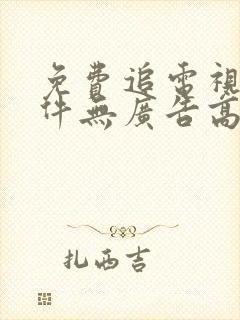 免費追電視
件無廣告高
扎西吉